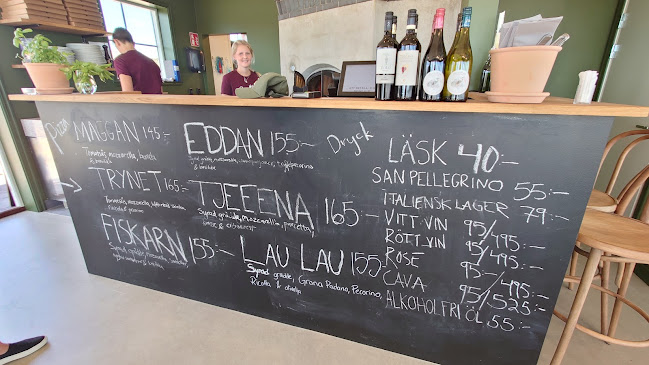 Pizza
MAGGAN 145:-
Tomatsås, mozzarella, burrata
& basilika
TRYNET 165:-
Tomatsås, mozzarella,
FISKARN 155:-
Syrad grädde, mozzarella,
EDDAN 155:-
Syrad grädde, mozzarella,
TJEEENA 165:-
Syrad grädde, mozzarella,
LAU LAU 155:-
Syrad grädde, Grana Padano, Pecorino,
Ricotta &
Dryck
LÄSK 40:-
SAN PELLEGRINO 55:-
ITALIENSK LAGER 79:-
VITT VIN 95/495:-
RÖTT VIN 95/495:-
ROSÉ 95/495:-
CAVA 95/525:-
ALKOHOLFRI ÖL 55:-